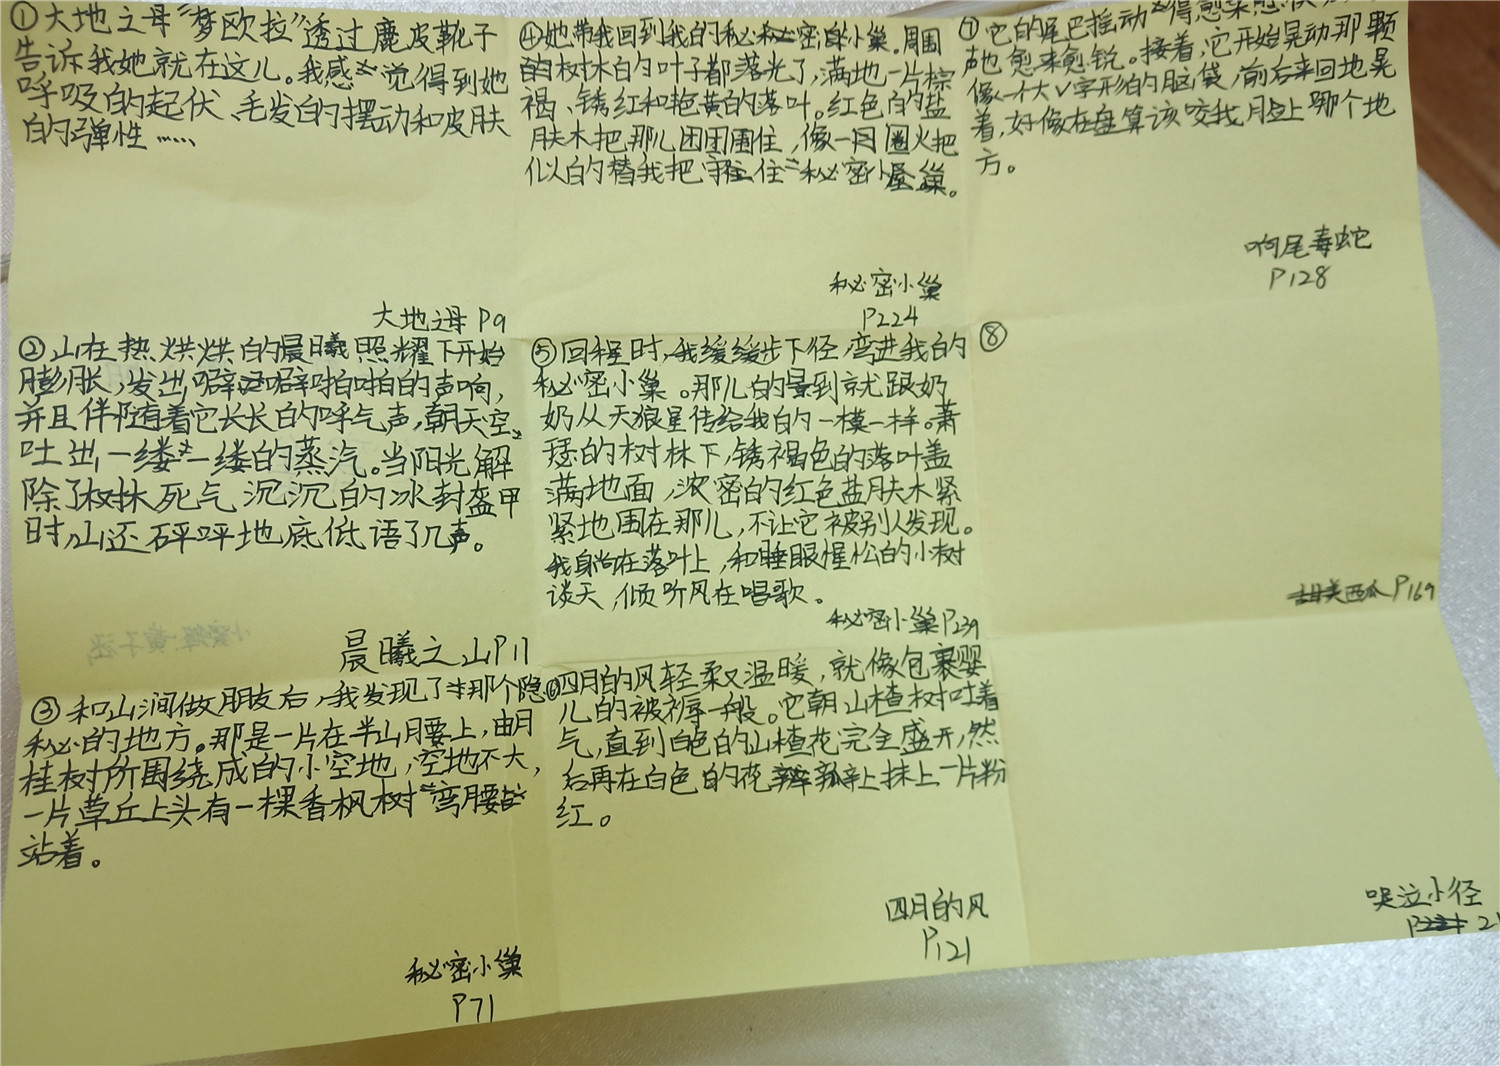 ①大地之母“梦欧拉”透过鹿皮靴子
告诉我她就在这儿。我感觉得到她
呼吸的起伏、毛发的摆动和皮肤
的弹性……
大地之母 P9
②山在热烘烘的晨曦照耀下开始
膨胀,发出噼噼啪啪的声响,
并且伴随着它长长的呼气声,朝天空
吐出一缕一缕的蒸汽。当阳光解
除了树林死气沉沉的冰封盔甲
时,山还砰呯地底低语了几声。
晨曦之山P11
③和山涧做朋友后,我发现了那个隐
秘的地方。那是一片在半山腰上,由月
桂树所围绕成的小空地,空地不大,
一片草丘上头有一棵香枫树弯腰
站着。
秘密小巢
P71
④她带我回到我的秘密的小巢。周围
的树木的叶子都落光了,满地一片棕
褐、锈红和艳黄的落叶。红色的盐
肤木把那儿团团围住,像一圈火把
似的替我把守住秘密小巢。
秘密小巢
P224
⑤回程时,我缓缓步下径,弯进我的
秘密小巢。那儿的景到就跟奶
奶从天狼星传给我的一模一样。萧
瑟的树林下,锈褐色的落叶盖
满地面,浓密的红色盐肤木紧
紧地围在那儿,不让它被别人发现。
我身尚在落叶上,和睡眼惺松的小树
谈天,倾听风在唱歌。
秘密小巢P239
⑥四月的风轻柔又温暖,就像包裹婴
儿的被褥一般。它朝山楂树吐着
气,直到白色的山楂花完全盛开,然
后再在白色的花瓣上抹上一片粉
红。
四月的风
P121
⑦它的尾巴摇动得愈来愈
声也愈来愈锐。接着,它开始晃动那颗
像一个大V字形的脑袋,前后来回地晃
着,好像在盘算该咬我脸上哪个地
方。
响尾毒蛇
P128
⑧
甜美西瓜P169
哭泣小径